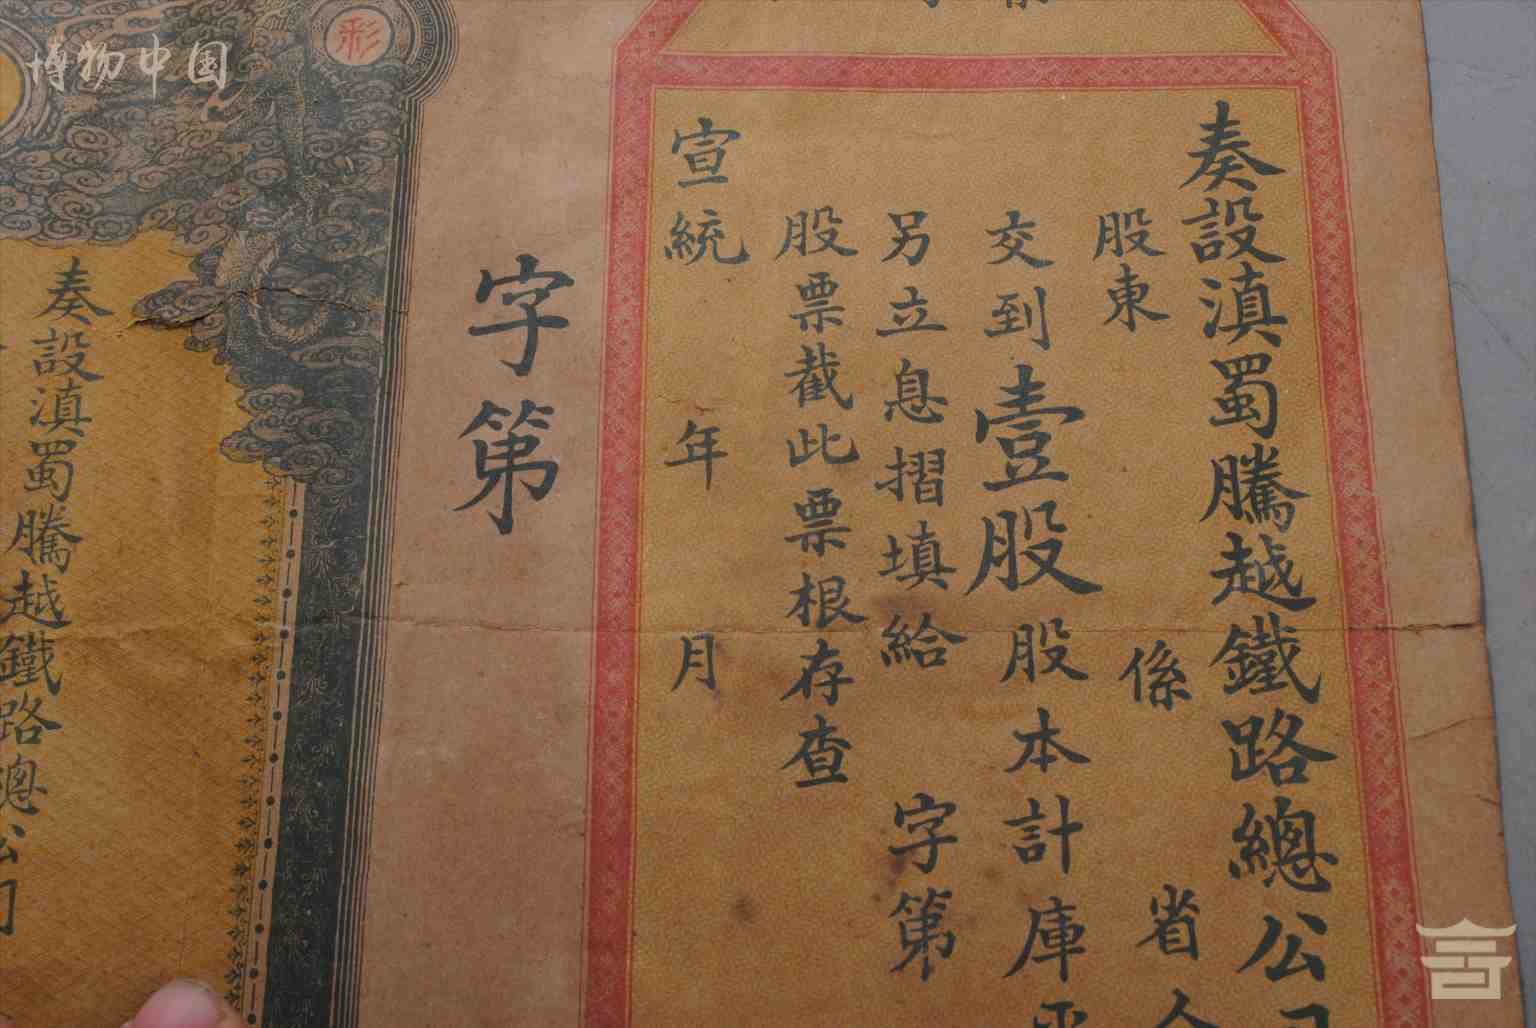 奏設滇蜀騰越鐵路總公司
股東 係 省
交到壹股股本計庫平
另立息摺填給 字第
股票截此票根存查
宣統 年 月
字第
彩
奏設滇蜀騰越鐵路總公司
博物中国